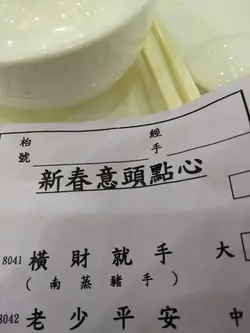 枱號 經手
新春意頭點心
8041 橫財就手 大
(南蒸豬手)
8042 老少平安 中